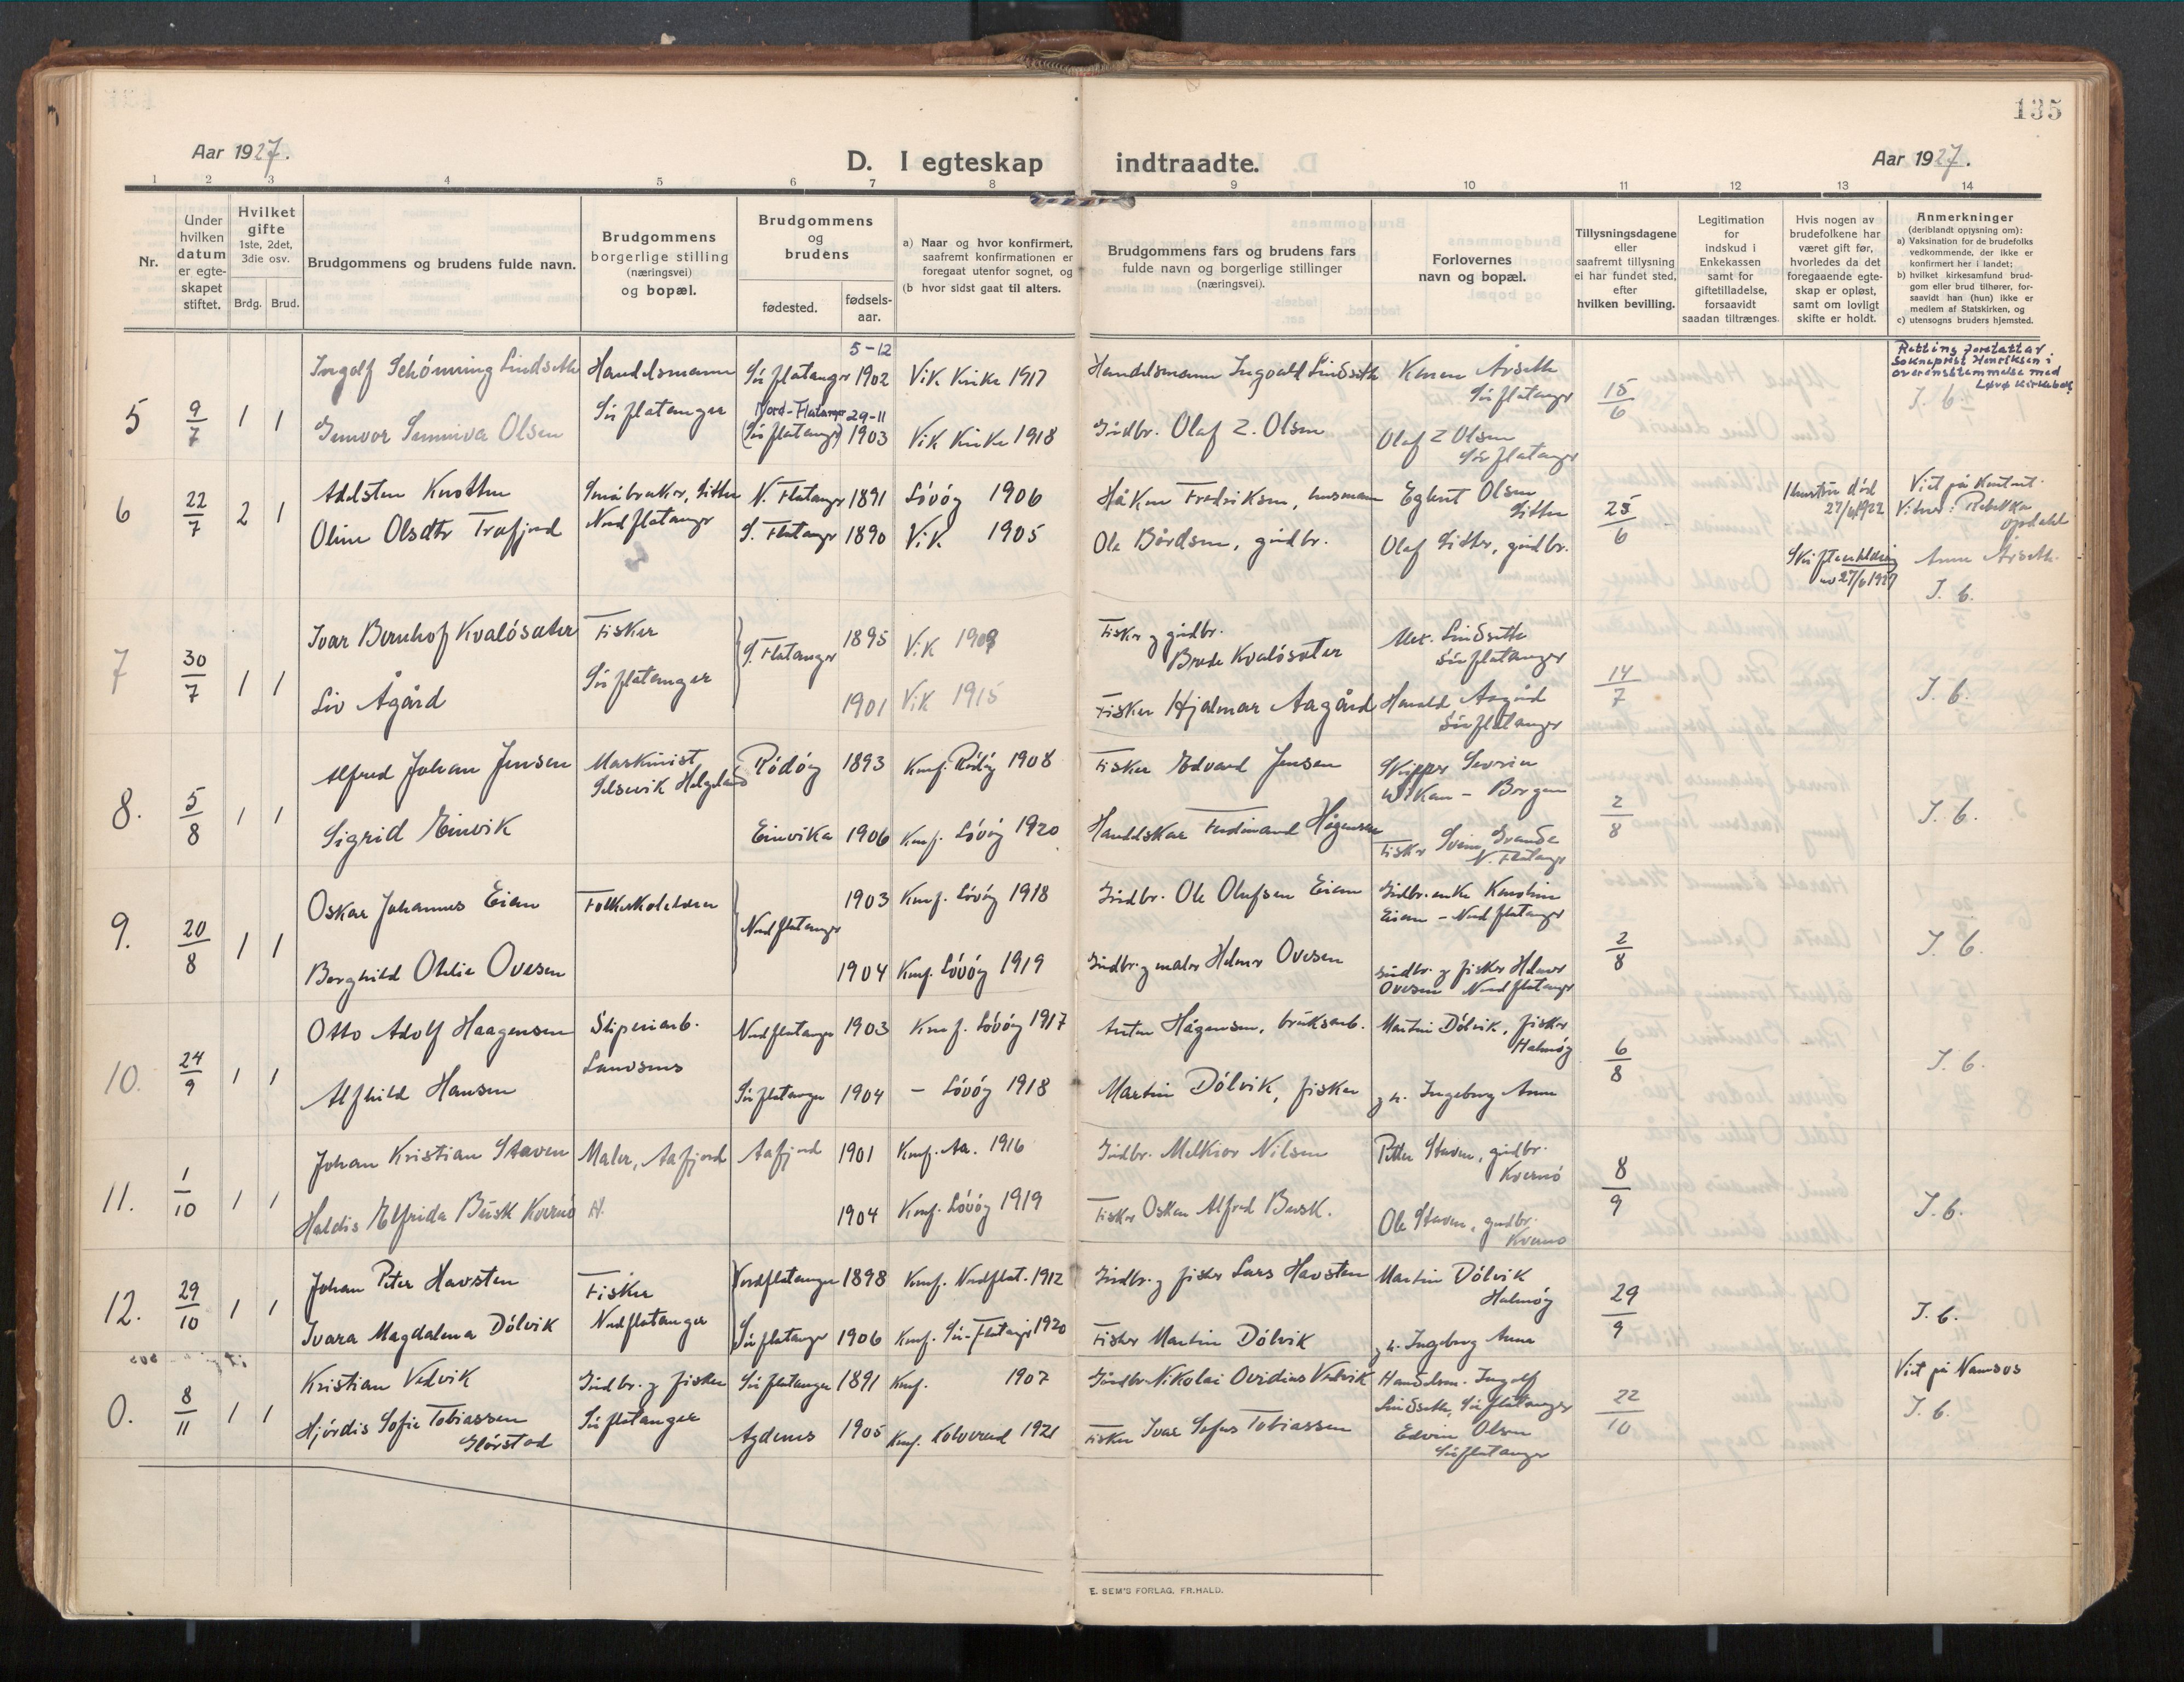 135
Aar 1927.
D. I egteskap indtraadte.
Aar 1927.
1 2 3 4 5 6 7 8 9 10 11 12 13 14
Nr.
Under hvilken datum er egte-skapet stiftet.
Hvilket gifte 1ste, 2det, 3die osv.
Brdg. Brud.
Brudgommens og brudens fulde navn.
Brudgommens borgerlige stilling (næringsvei) og bopæl.
Brudgommens og brudens
fødested.
fødsels-aar.
a) Naar og hvor konfirmert, saafremt konfirmationen er foregaat utenfor sognet, og
(b hvor sidst gaat til alters.
Brudgommens fars og brudens fars fulde navn og borgerlige stillinger (næringsvei).
Forlovernes navn og bopæl.
Tillysningsdagene eller saafremt tillysning ei har fundet sted, efter hvilken bevilling.
Legitimation for indskud i Enkekassen samt for giftetilladelse, forsaavidt saadan tiltrænges.
Hvis nogen av brudefolkene har været gift før, hvorledes da det foregaaende egte-skap er opløst, samt om lovligt skifte er holdt.
Anmerkninger (deriblandt opjysning om):
a) Vaksination for de brudefolks vedkommende, der ikke er konfirmert her i landet;
b) hvilket kirkesamfund brud-gom eller brud tilhører, for-saavidt han (hun) ikke er medlem af Statskirken, og
c) utensogns bruders hjemsted.
5 9/7 1 1
Ingolf Schönning Lindseth Handelsmann Sör flatanger 5-12 1902 Vik Kirke 1917 Handelsmann Ingvald Lindseth Karen Årseth Sör flatanger 15/6
Retting foretatt av Sokneprest Henriksen i overensstemmelse med Løvø kirkebok
J. b.
Gunvor Sunniva Olsen Sör flatanger Nord-Flatanger (Sör flatanger) 29-11 1903 Vik Kirke 1918 Gårdbr. Olaf Z. Olsen Olaf Z Olsen Sör flatanger
6 22/7 2 1
Adelsten Knotten Småbruker, Sitter N. Flatanger 1891 Lövöy 1906 Håken Fredriksen, husmann Egbert Olsen Sitter 25/6 Hustru död 27/6 1922 Viet på Kontoret. Vitner: Rebekka Opdahl
Oline Olsdtr Trefjord Nordflatanger S. Flatanger 1890 Vik 1905 Ole Bårdsen, gårdbr. Olaf Sitter, gårdbr. Skiftemelding av 27/6 1927 Anna Årseth. J. b.
7 30/7 1 1
Ivar Bernhof Kvalösæter Fisker S. Flatanger 1895 Vik 1909 Fisker og gårdbr. Brede Kvalösæter Alex. Lindseth Sör flatanger 14/7
Liv Ågård Sör flatanger 1901 Vik 1915 Fisker Hjalmar Aagård Harald Aagård Sör flatanger J. b.
8. 5/8 1 1
Alfred Johan Jensen Maskinist Selsøvik Helgeland Rödöy 1893 Konf. Rödöy 1908 Fisker Edvard Jensen Skipper Severin Wikan - Borgan 2/8 J. b.
Sigrid Einvik Einvika 1906 Konf. Lövöy 1920 Handelskar Ferdinand Hågensen Fisker Svein Grande N. Flatanger
9. 20/8 1 1
Oskar Johannes Eian Folkeskolelærer Nordflatanger 1903 Konf. Lövöy 1918 Gårdbr. Ole Olufsen Eian Gårdbr.enke Karoline Eian - Nordflatanger 2/8 J. b.
Borghild Otelie Ovesen 1904 Konf. Lövöy 1919 Gårdbr. og maler Helmer Ovesen Gårdbr. og fisker Helmer Ovesen Nordflatanger
10. 24/9 1 1
Otto Adolf Haagensen Sliperiarb. Nordflatanger 1903 Konf. Lövöy 1917 Anton Hågensen, bruksarb. Martin Dölvik, fisker Halmöy 6/8 J. b.
Alfhild Hansen Sör flatanger 1904 - Lövöy 1918 Martin Dölvik, fisker og h. Ingeborg Anna
11. 1/10 1 1
Johan Kristian Staven Maler, Aafjord Aafjord 1901 Konf. Aa. 1916 Gårdbr. Melkior Nilsen Petter Staven, gårdbr. Kvernö 8/9
Haldis Elfrida Busk Kvernö 1904 Konf. Lövöy 1919 Fisker Oskar Alfred Busk. Ole Staven, gårdbr. Kvernö J. b.
12. 29/10 1 1
Johan Peter Havsten Fisker Nordflatanger 1898 Konf. Nordflat. 1912 Gårdbr. og fisker Lars Havsten Martin Dölvik Halmöy 29/9 J. b.
Ivara Magdalena Dölvik Nordflatanger Sör flatanger 1906 Konf. Sör-Flatanger 1920 Fisker Martin Dölvik og h. Ingeborg Anna
0. 8/11 1 1
Kristian Vedvik Gårdbr. og fisker Sör flatanger 1891 Konf. 1907 Gårdbr. Nikolai Ovidius Vedvik Handelsm. Ingolf Lindseth, Sör flatanger 22/10 Viet på Namsos J. b.
Hjördis Sofie Tobiassen Glörstad Sör flatanger Agdenes 1905 Konf. Kolvereid 1921 Fisker Ivar Sofus Tobiassen Edvin Olsen Sör flatanger
E. SEM'S FORLAG, FR.HALD.